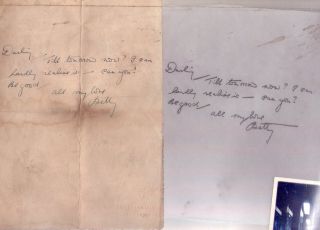 Darling
Till tomorrow now? I can
hardly realise it — can you?
Be good
all my love
Betty
Darling
Till tomorrow now? I can
hardly realise it — can you?
Be good
all my love
Betty